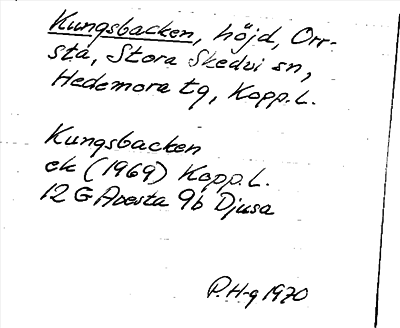 Kungsbacken, höjd, Orr-
sta, Stora Skedvi sn,
Hedemora tg, Kopp. L.
Kungsbacken
ek (1969) Kopp. L.
12 G Avesta 9b Djusa
P. H-g 1970